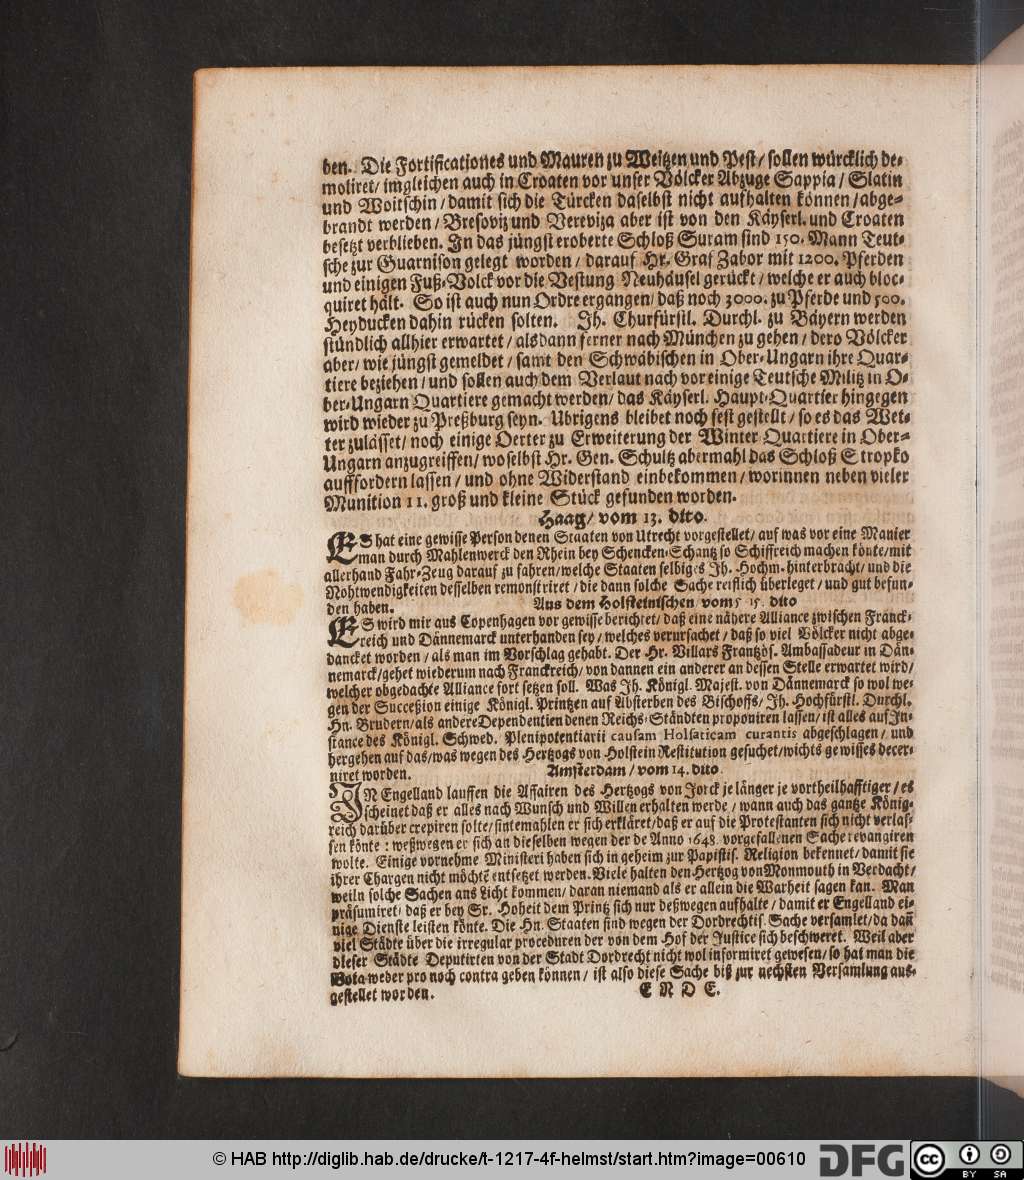 ben. Die Fortificationes und Mauren zu Weitzen und Pest/ sollen würcklich de-
moliret/ imgleichen auch in Croaten vor unser Völcker Abzuge Sappia/ Slatin
und Woitschin/ damit sich die Türcken daselbst nicht aufhalten können/ abge-
brandt werden/ Bresovitz und Vereviza aber ist von den Käyserl. und Croaten
besetzt verblieben. In das jüngst eroberte Schloß Suram sind 150. Mann Teut-
sche zur Guarnison gelegt worden/ darauf Hr. Graf Zabor mit 1200. Pferden
und einigen Fuß-Volck vor die Vestung Neuhäusel gerückt/ welche er auch bloc-
quiret hält. So ist auch nun Ordre ergangen/ daß noch 3000. zu Pferde und 500.
Heyducken dahin rücken solten. Ih. Churfürstl. Durchl. zu Bäyern werden
stündlich allhier erwartet/ alsdann ferner nach München zu gehen/ dero Völcker
aber/ wie jüngst gemeldet/ samt den Schwäbischen in Ober-Ungarn ihre Quar-
tiere beziehen/ und sollen auch dem Verlaut nach vor einige Teutsche Militz in O-
ber-Ungarn Quartiere gemacht werden/ das Käyserl. Haupt-Quartier hingegen
wird wieder zu Preßburg seyn. Ubrigens bleibet noch fest gestellt/ so es das Wet-
ter zulässet/ noch einige Oerter zu Erweiterung der Winter Quartiere in Ober-
Ungarn anzugreiffen/ woselbst Hr. Gen. Schultz abermahl das Schloß Stropko
aufffordern lassen/ und ohne Widerstand einbekommen/ worinnen neben vieler
Munition 11. groß und kleine Stück gefunden worden.
Haag/ vom 13. dito.
ES hat eine gewisse Person denen Staaten von Utrecht vorgestellet/ auf was vor eine Manier
man durch Mahlenwerck den Rhein bey Schencken-Schantz so Schiffreich machen könte/ mit
allerhand Fahr-Zeug darauf zu fahren/ welche Staaten selbiges Ih. Hochm. hinterbracht/ und die
Nohtwendigkeiten desselben remonstriret/ die dann solche Sache reiflich überleget/ und gut befun-
den haben.
Aus dem Holsteinischen/ vom 5. 15. dito
ES wird mir aus Copenhagen vor gewisse berichtet/ daß eine nähere Alliance zwischen Franck-
reich und Dännemarck unterhanden sey/ welches verursachet/ daß so viel Völcker nicht abge-
dancket worden/ als man im Vorschlag gehabt. Der Hr. Villars Frantzös. Ambassadeur in Dän-
nemarck/ gehet wiederum nach Franckreich/ von dannen ein anderer an dessen Stelle erwartet wird/
welcher obgedachte Alliance fort setzen soll. Was Ih. Königl. Majest. von Dännemarck so wol we-
gen der Succeßion einige Königl. Printzen auf Absterben des Bischoffs/ Ih. Hochfürstl. Durchl.
Hn. Brudern/ als andere Dependentien denen Reichs-Ständten proponiren lassen/ ist alles auf In-
stance des Königl. Schwed. Plenipotentiarii causam Holsaticam curantis abgeschlagen/ und
hergehen auf das/ was wegen des Hertzogs von Holstein Restitution gesuchet/ nichts gewisses decer-
niret worden.
Amsterdam/ vom 14. dito.
IN Engelland lauffen die Affairen des Hertzogs von Jorck je länger je vortheilhafftiger/ es
scheinet daß er alles nach Wunsch und Willen erhalten werde/ wann auch das gantze König-
reich darüber crepiren solte/ sintemahlen er sich erkläret/ daß er auf die Protestanten sich nicht verlas-
sen könte: weßwegen er sich an dieselben wegen der de Anno 1648. vorgefallenen Sache revangiren
wolte. Einige vornehme Ministeri haben sich in geheim zur Papistis. Religion bekennet/ damit sie
ihrer Chargen nicht möchtē entsetzet werden. Viele halten den Hertzog von Monmouth in Verdacht/
weiln solche Sachen ans Licht kommen/ daran niemand als er allein die Warheit sagen kan. Man
präsumiret/ daß er bey Sr. Hoheit dem Printz sich nur deßwegen aufhalte/ damit er Engelland ei-
nige Dienste leisten könte. Die Hn. Staaten sind wegen der Dordrechtis. Sache versamlet/ da dañ
viel Städte über die irregular proceduren der von dem Hof der Justice sich beschweret. Weil aber
dieser Städte Deputirten von der Stadt Dordrecht nicht wol informiret gewesen/ so hat man die
Vota weder pro noch contra geben können/ ist also diese Sache biß zur nechsten Versamlung aus-
gestellet worden.
E N D E.
© HAB http://diglib.hab.de/drucke/t-1217-4f-helmst/start.htm?image=00610
DFG
cc
BY SA